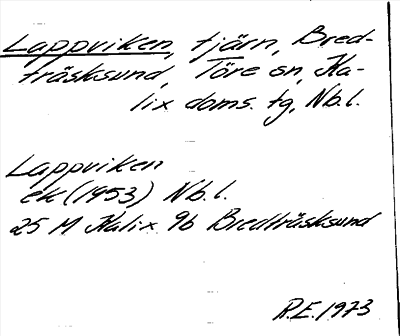 Lappviken, tjärn, Bred-
träsksund, Töre sn, Ka-
lix doms. tg, Nb.l.
Lappviken
ek (1953) Nb.l.
25 M Kalix 9b Bredträsksund
R.E. 1973